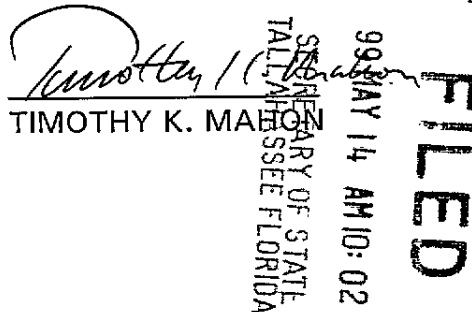 Timothy K. Mahon
TIMOTHY K. MAHON
FILED
99 MAY 14 AM 10: 02
SECRETARY OF STATE
TALLAHASSEE FLORIDA